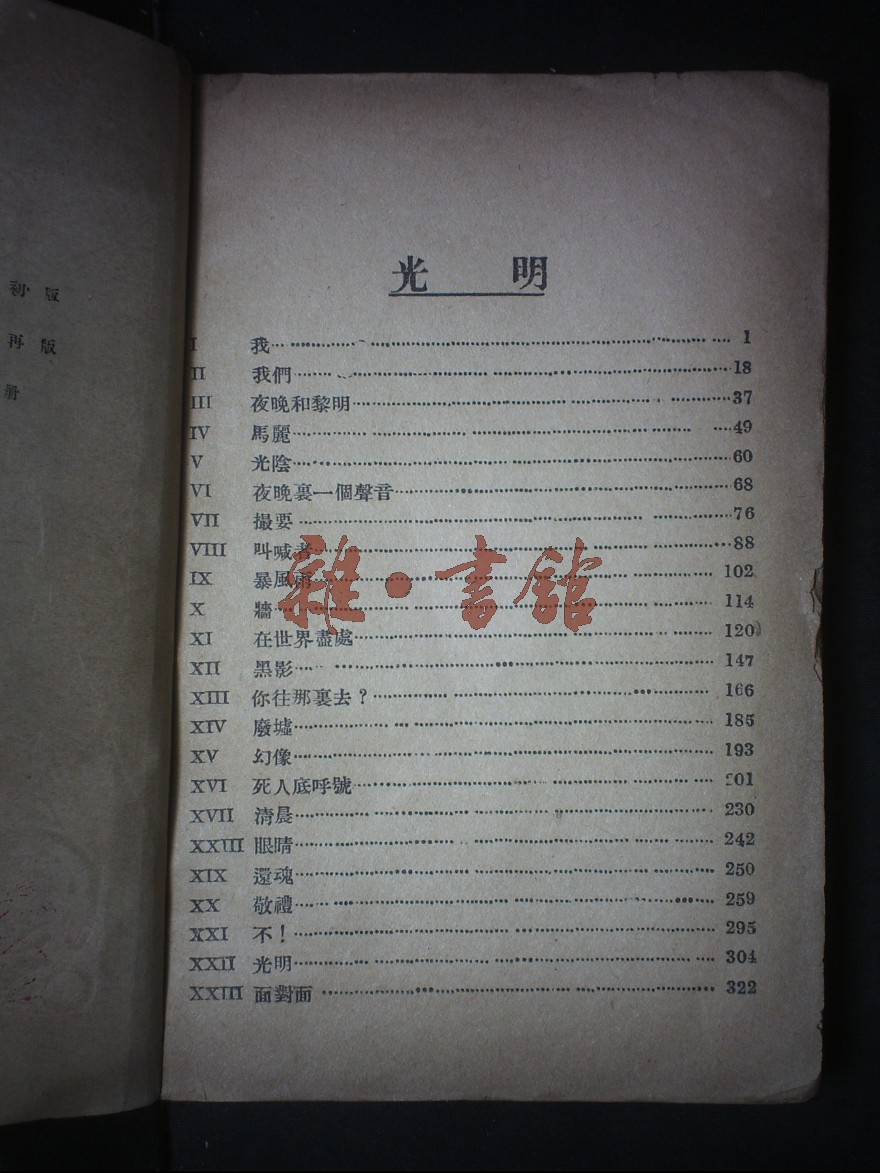 初版
再版
册
光明
I 我 1
II 我們 18
III 夜晚和黎明 37
IV 馬麗 49
V 光陰 60
VI 夜晚裏一個聲音 68
VII 撮要 76
VIII 叫喊者 88
IX 暴風雨 102
X 牆 114
XI 在世界盡處 120
XII 黑影 147
XIII 你往那裏去？ 166
XIV 廢墟 185
XV 幻像 193
XVI 死人底呼號 201
XVII 清晨 230
XXIII 眼睛 242
XIX 還魂 250
XX 敬禮 259
XXI 不！ 295
XXII 光明 304
XXIII 面對面 322
雜·書館